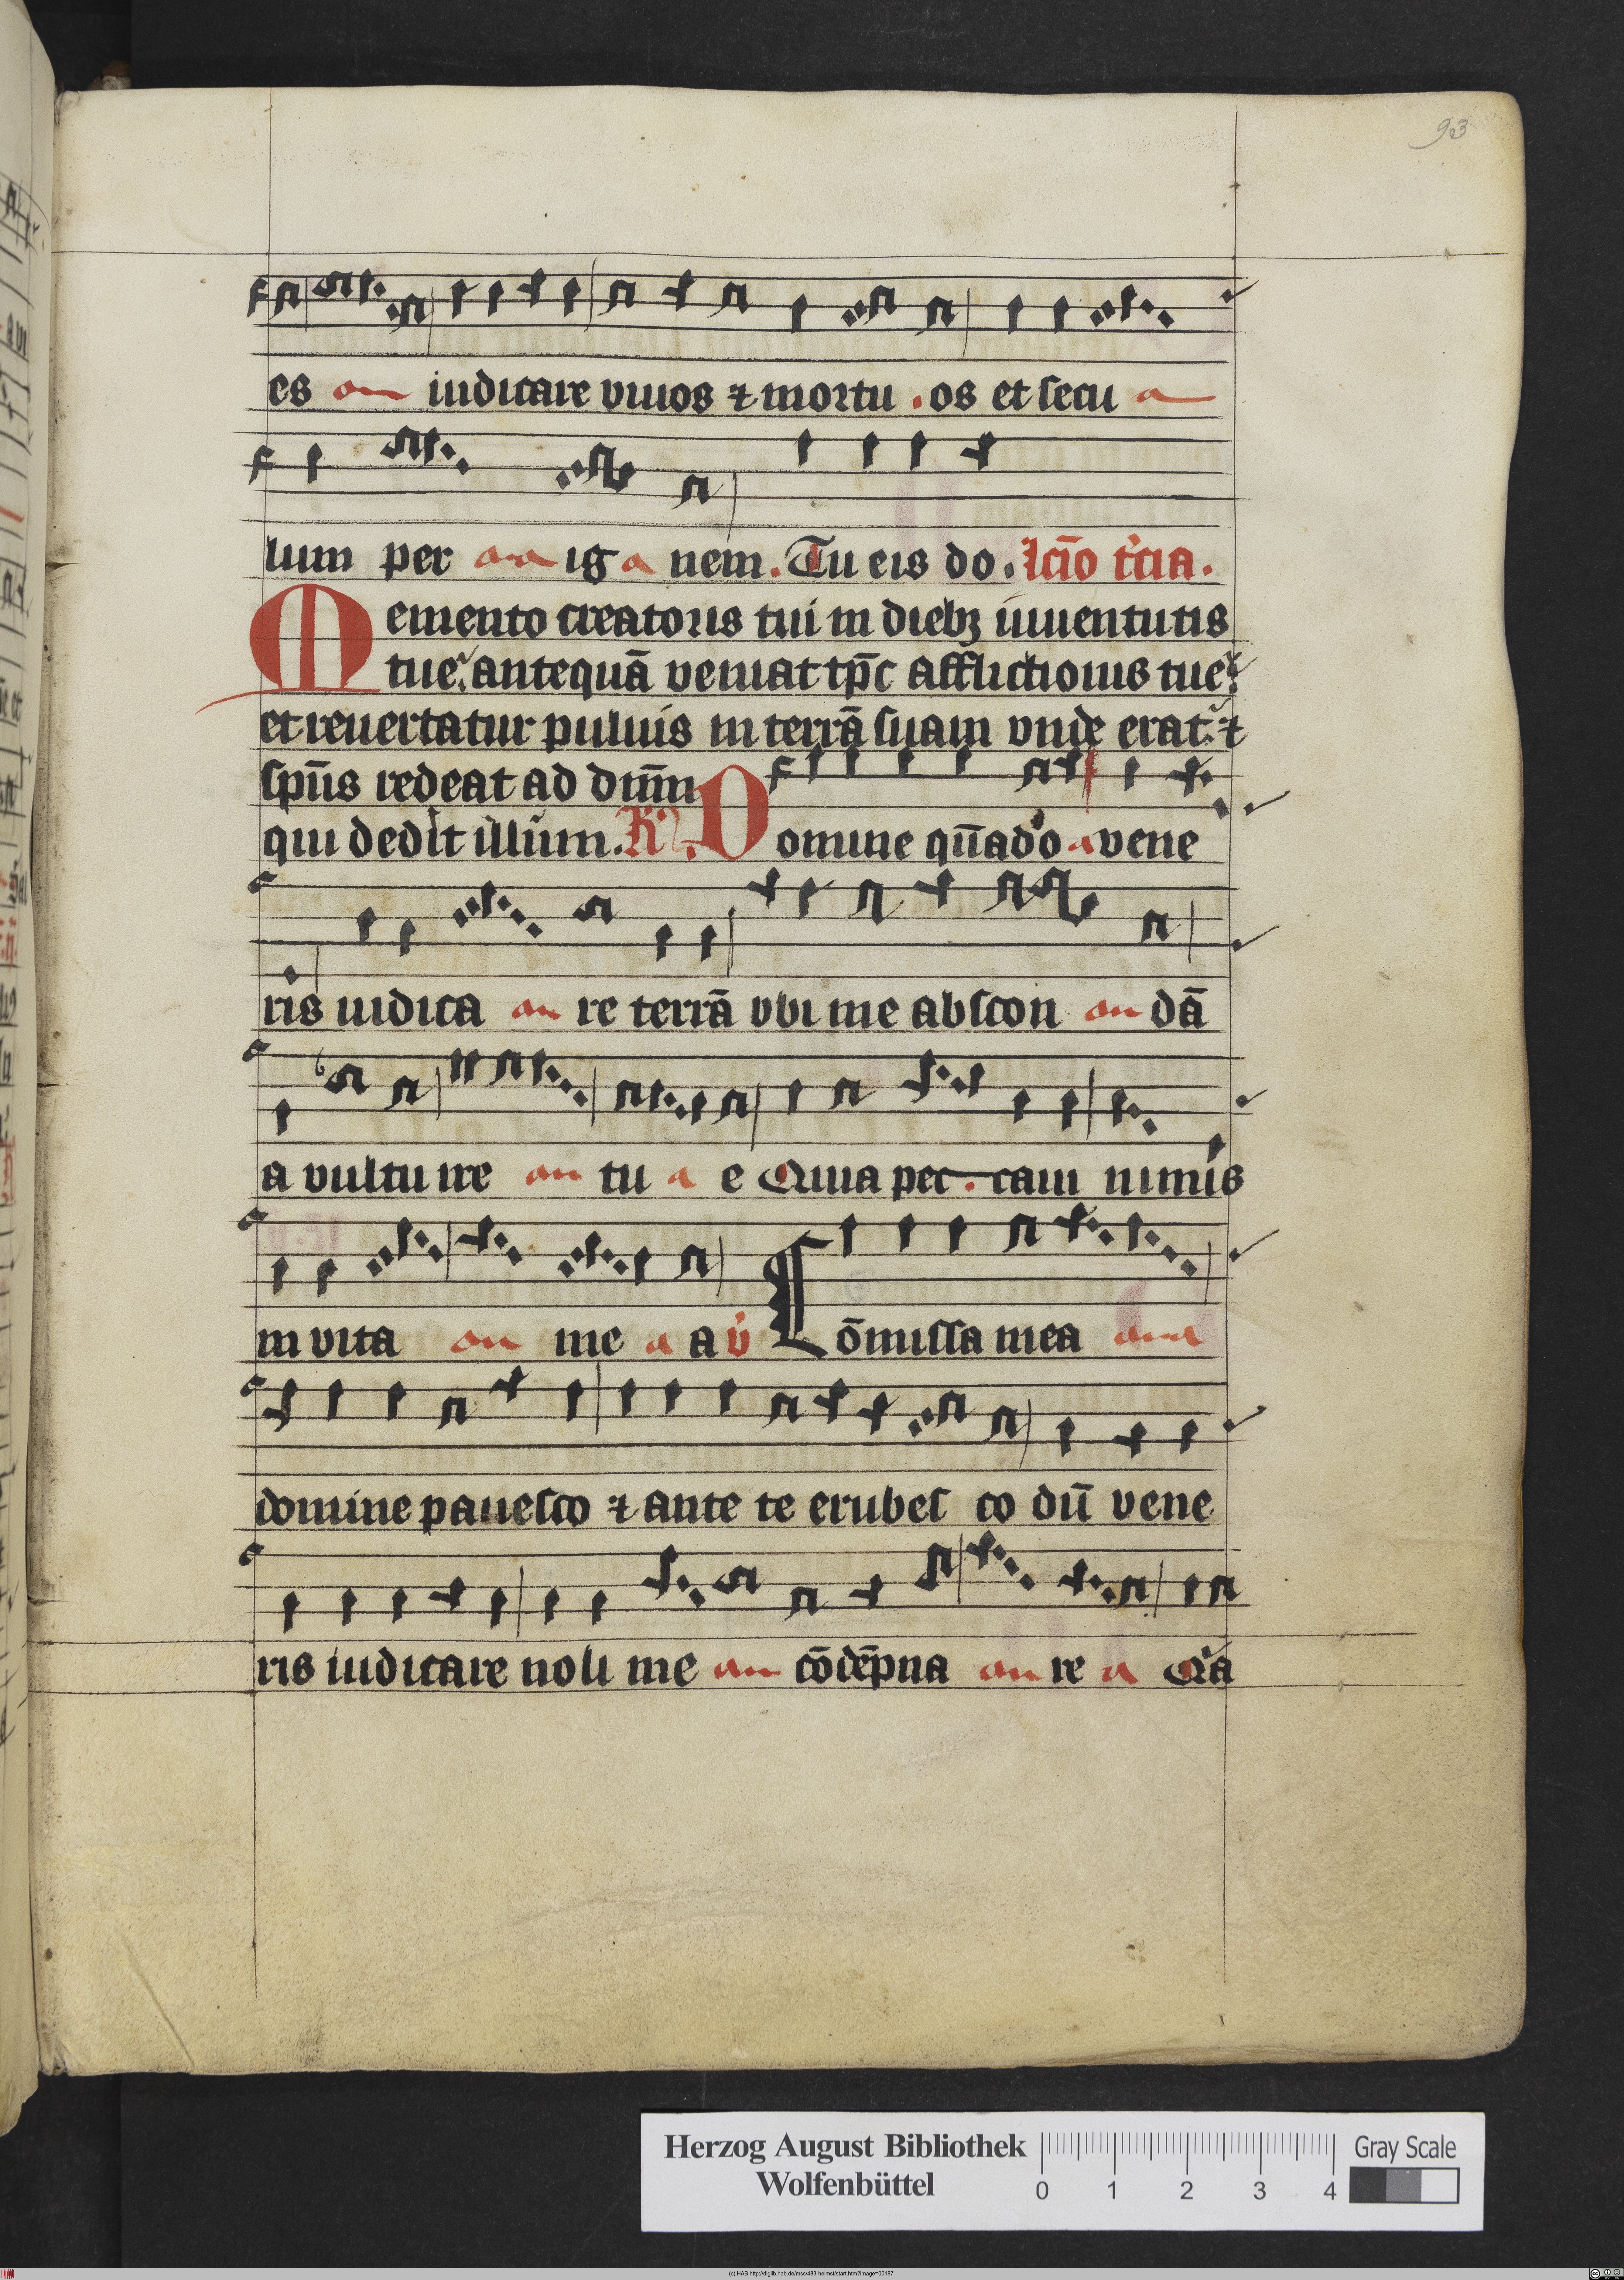 93
es iudicare viuos ⁊ mortu . os et secu
lum per ig nem. Tu eis do. lc̄io t'cia.
Memento creatoris tui in dieb₃ iuuentutis
tue. antequā veniat tp̄c afflictionis tue.
et reuertatur puluis in terrā suam vnde erat. ⁊
sp̄us redeat ad dn̄m
qui dedit illum. R̄ Domine qn̄ado a vene
ris iudica re terrā vbi me abscon dā
a vultu ire tu a e Quia pec . caui nimis
in vita me a a v̇ Cōmissa mea
domine pauesco ⁊ ante te erubes co dū vene
ris iudicare noli me cōdēpna re a Q'a
Herzog August Bibliothek
Wolfenbüttel
0 1 2 3 4
Gray Scale
(c) HAB http://diglib.hab.de/mss/483-helmst/start.htm?image=00187